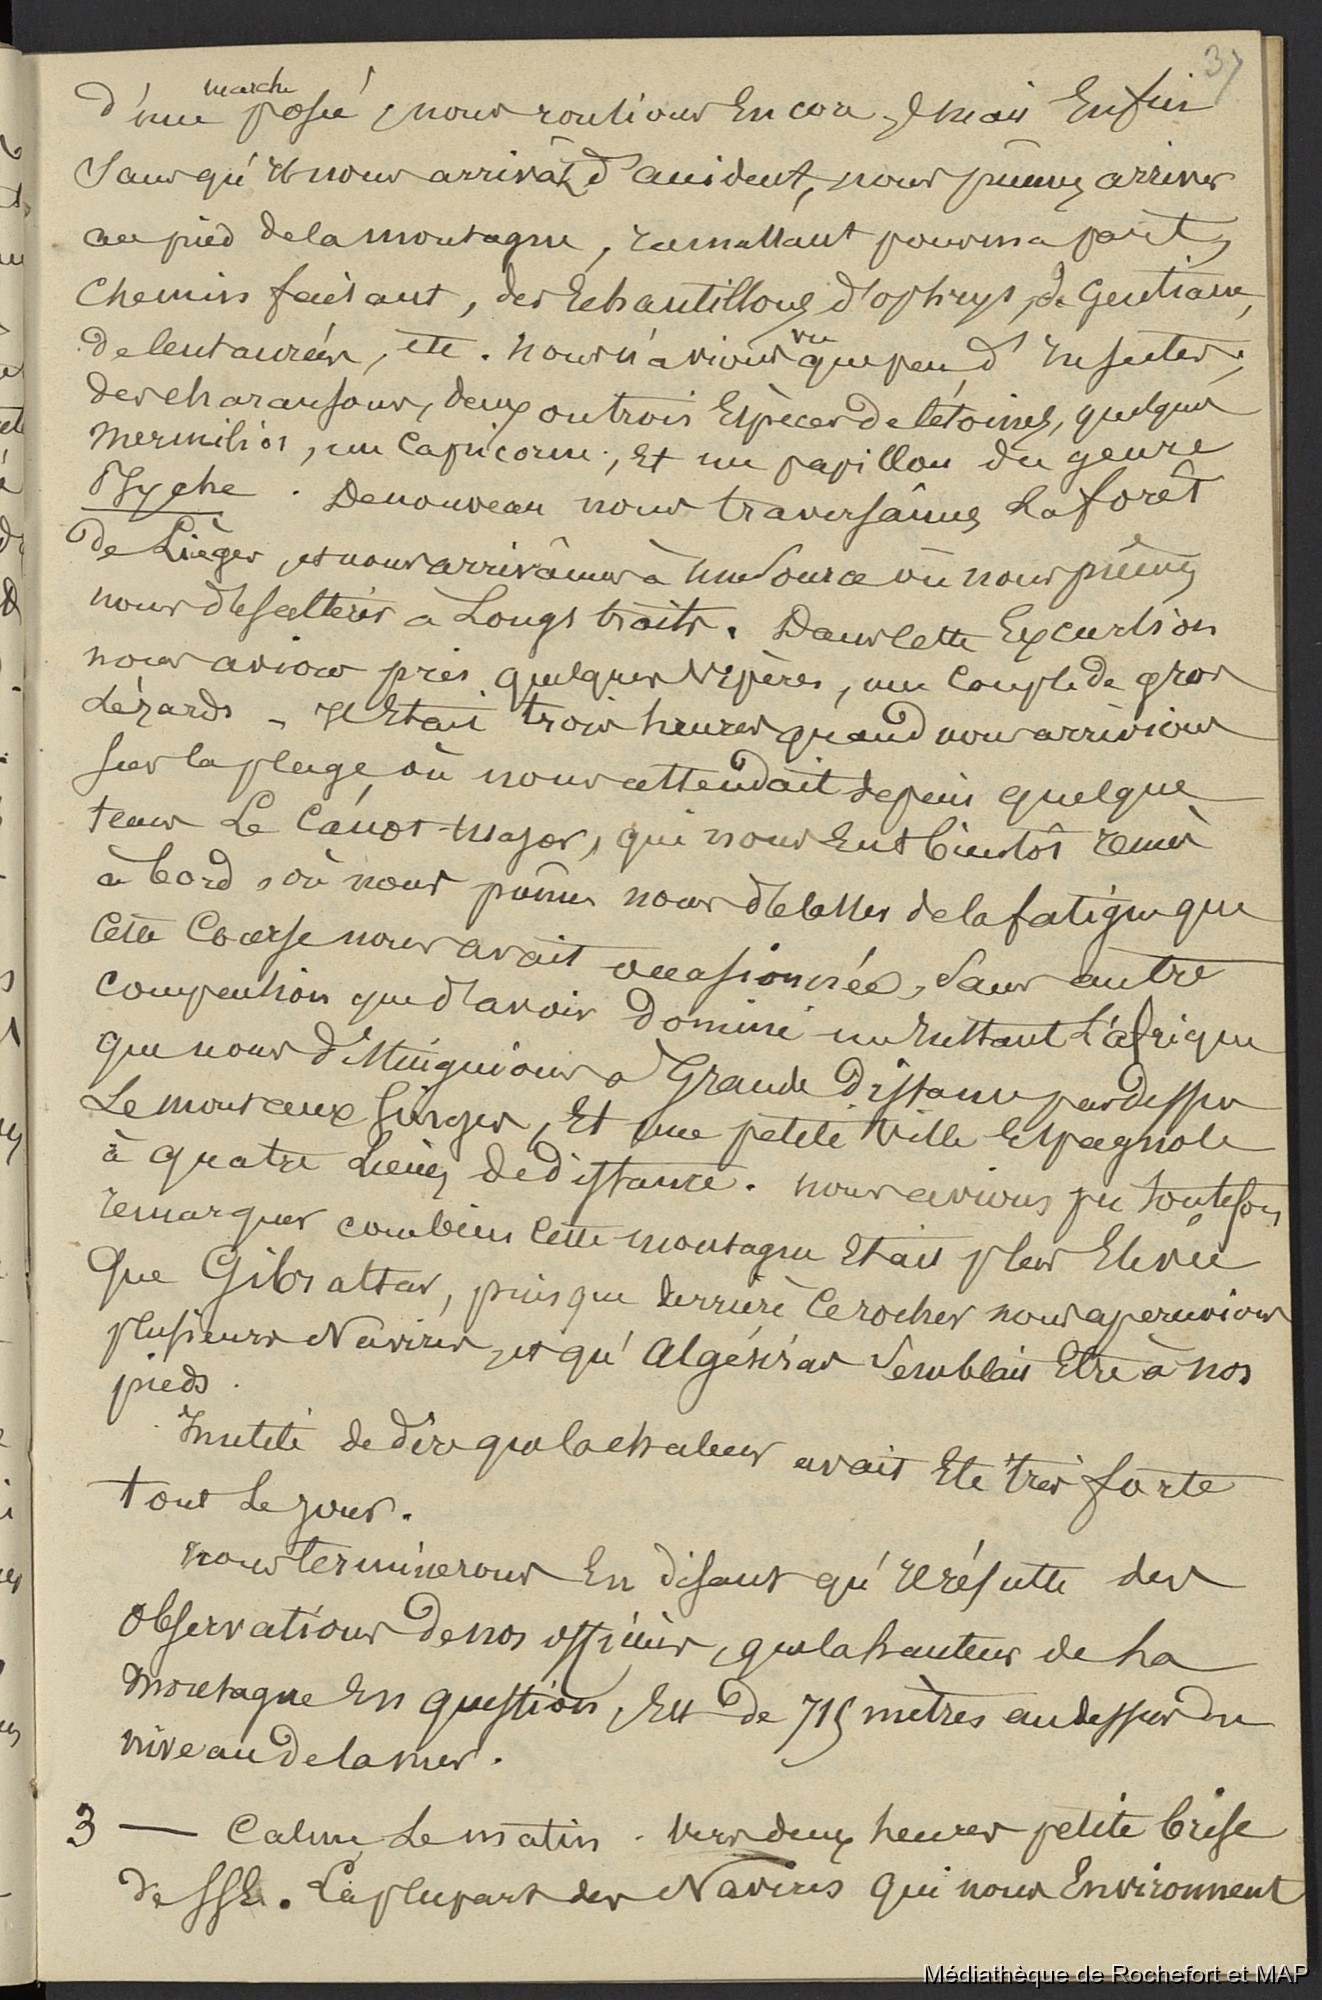 37
d'une marche posée, nous roulions Encore, mais Enfin
Sans qu'il nous arrivât d'accident, nous pûmes arriver
au pied de la montagne, ramassant pour ma part,
chemin faisant, des Echantillons d'ophrys, de Gentiane,
de Centaurées, etc. Nous n'avions vu que peu d'Insectes;
des charansons, deux ou trois Espèces de Cétoines, quelques
, un Capricorne, Et un papillon du genre
Psyche. De nouveau nous traversâmes La forêt
de Lièges, et nous arrivâmes à Une Source où nous pûmes
nous désaltérer à Longs traits. Dans Cette Excursion
nous avions pris quelques Vipères, une Couple de gros
Lézards - Il Etait trois heures quand nous arrivions
sur la plage, où nous attendait depuis quelque
tems Le Canot-major, qui nous Eut bientôt remis
à bord, où nous pûmes nous délasser de la fatigue que
Cette Course nous avait occasionnée, Sans autre
compensation que d'avoir Dominé un Instant L'afrique
que nous distinguions à Grande Distance par dessus
Le mont aux Singes, Et une petite Ville Espagnole
à quatre Lieues de distance. nous avions pu toutefois
remarquer combien Cette montagne Etait plus Elevée
Que Gibraltar, puisque derrière Ce rocher nous apercevions
plusieurs Navires, et qu'Algésiras Semblait Etre à nos
pieds.
Inutile de dire que la chaleur avait Eté très forte
tout Le jour.
nous terminerons En disant qu'Il résulte des
observations de nos officiers, que la hauteur de La
montagne En question, Est de 715 mètres au dessus du
niveau de la mer.
3 — Calme Le matin. Vers deux heures petite brise
de SSE. La plupart des Navires Qui nous Environnent
Médiathèque de Rochefort et MAP